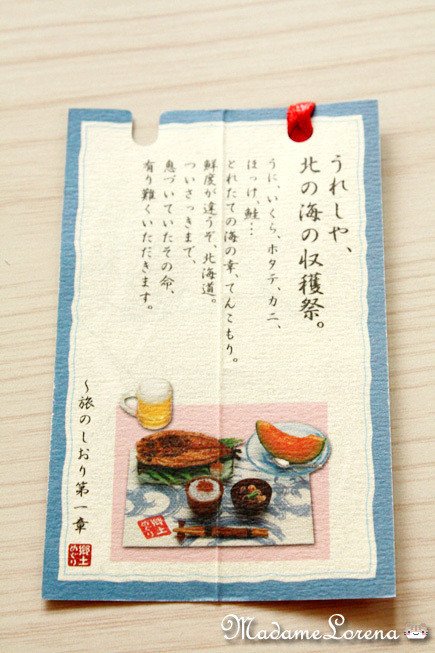 うれしや、
北の海の収穫祭。
うに、いくら、ホタテ、カニ、
ほっけ、鮭…
とれたての海の幸、てんこもり。
鮮度が違うぞ、北海道。
ついさっきまで、
息づいていたその命、
有り難くいただきます。
〜旅のしおり第一章
郷土
めぐり
郷土
めぐり
MadameLorena